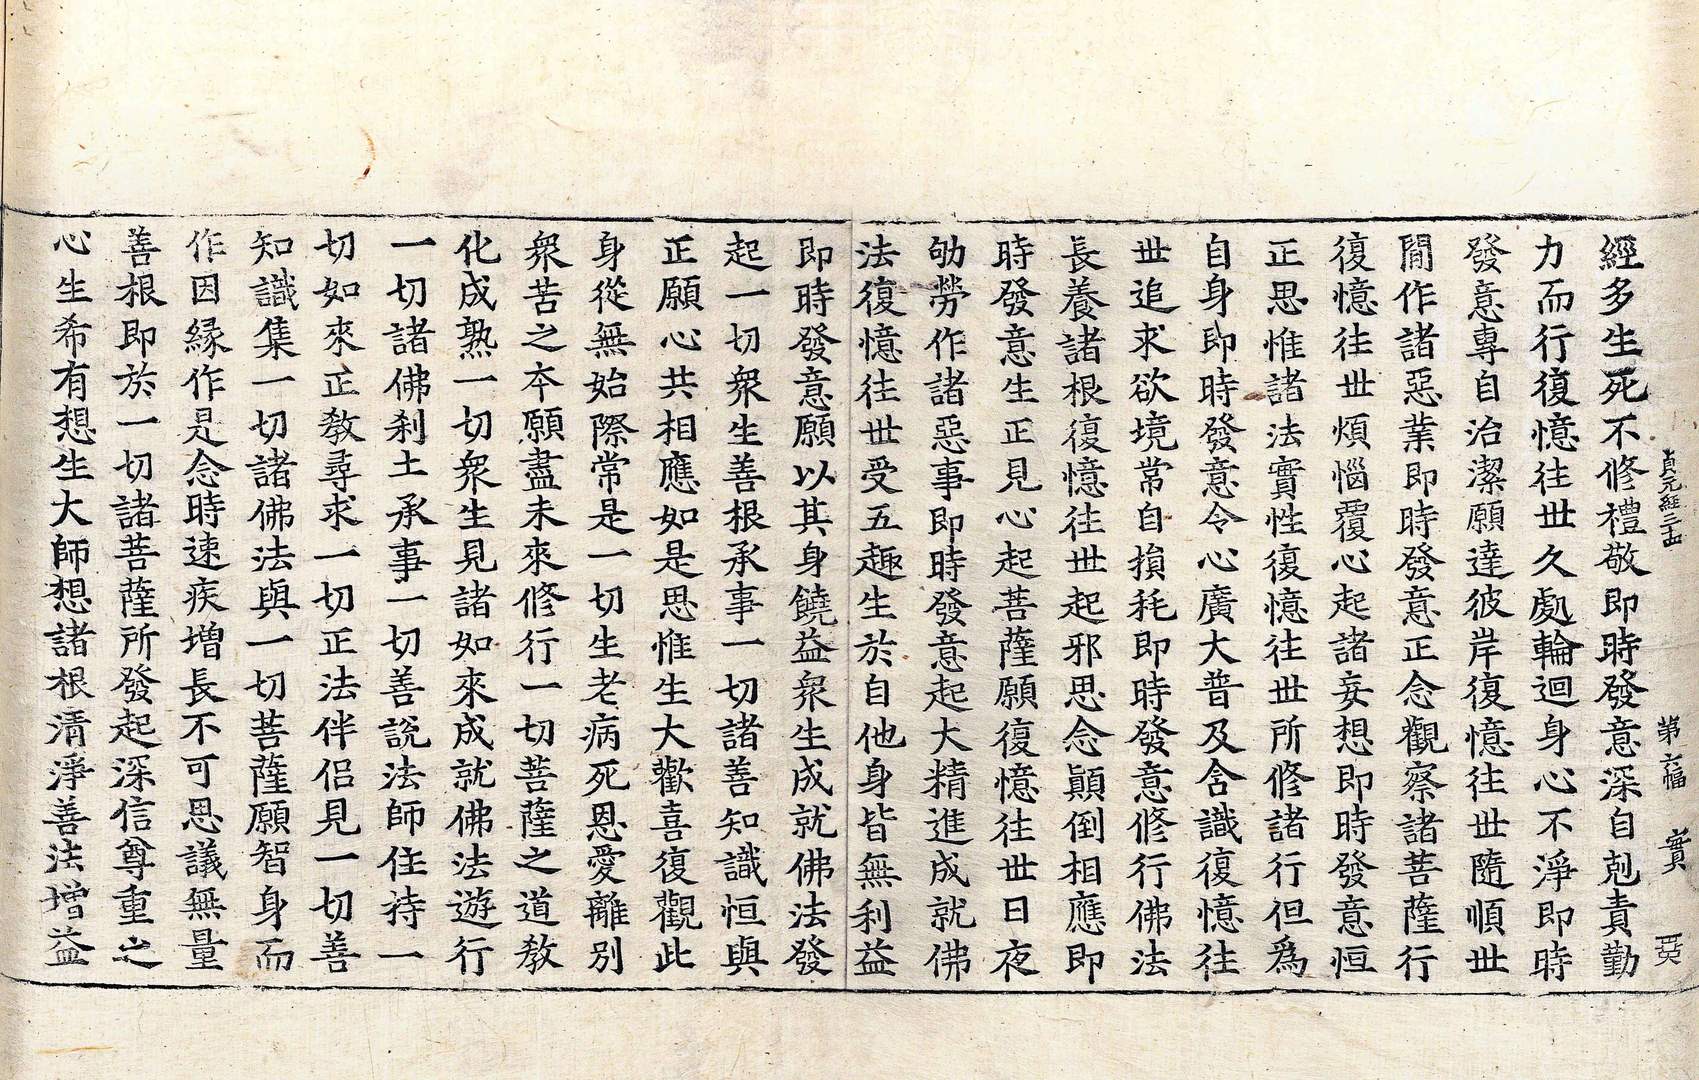 貞元經三
第六幅
實
經多生死不修禮敬即時發意深自剋責勤
力而行復憶往丗久處輪迴身心不淨即時
發意專自治潔願達彼岸復憶往丗隨順丗
間作諸惡業即時發意正念觀察諸菩薩行
復憶往丗煩惱覆心起諸妄想即時發意恒
正思惟諸法實性復憶往丗所修諸行但爲
自身即時發意令心廣大普及含識復憶往
丗追求欲境常自損耗即時發意修行佛法
長養諸根復憶往丗起邪思念顚倒相應即
時發意生正見心起菩薩願復憶往丗日夜
劬勞作諸惡事即時發意起大精進成就佛
法復憶往丗受五趣生於自他身皆無利益
即時發意願以其身饒益衆生成就佛法發
起一切衆生善根承事一切諸善知識恒與
正願心共相應如是思惟生大歡喜復觀此
身從無始際常是一切生老病死恩愛離別
衆苦之夲願盡未來修行一切菩薩之道教
化成熟一切衆生見諸如來成就佛法遊行
一切諸佛刹土承事一切善説法師住持一
切如來正教尋求一切正法伴侶見一切善
知識集一切諸佛法與一切菩薩願智身而
作因縁作是念時速疾增長不可思議無量
善根即於一切諸菩薩所發起深信尊重之
心生希有想生大師想諸根清淨善法增益